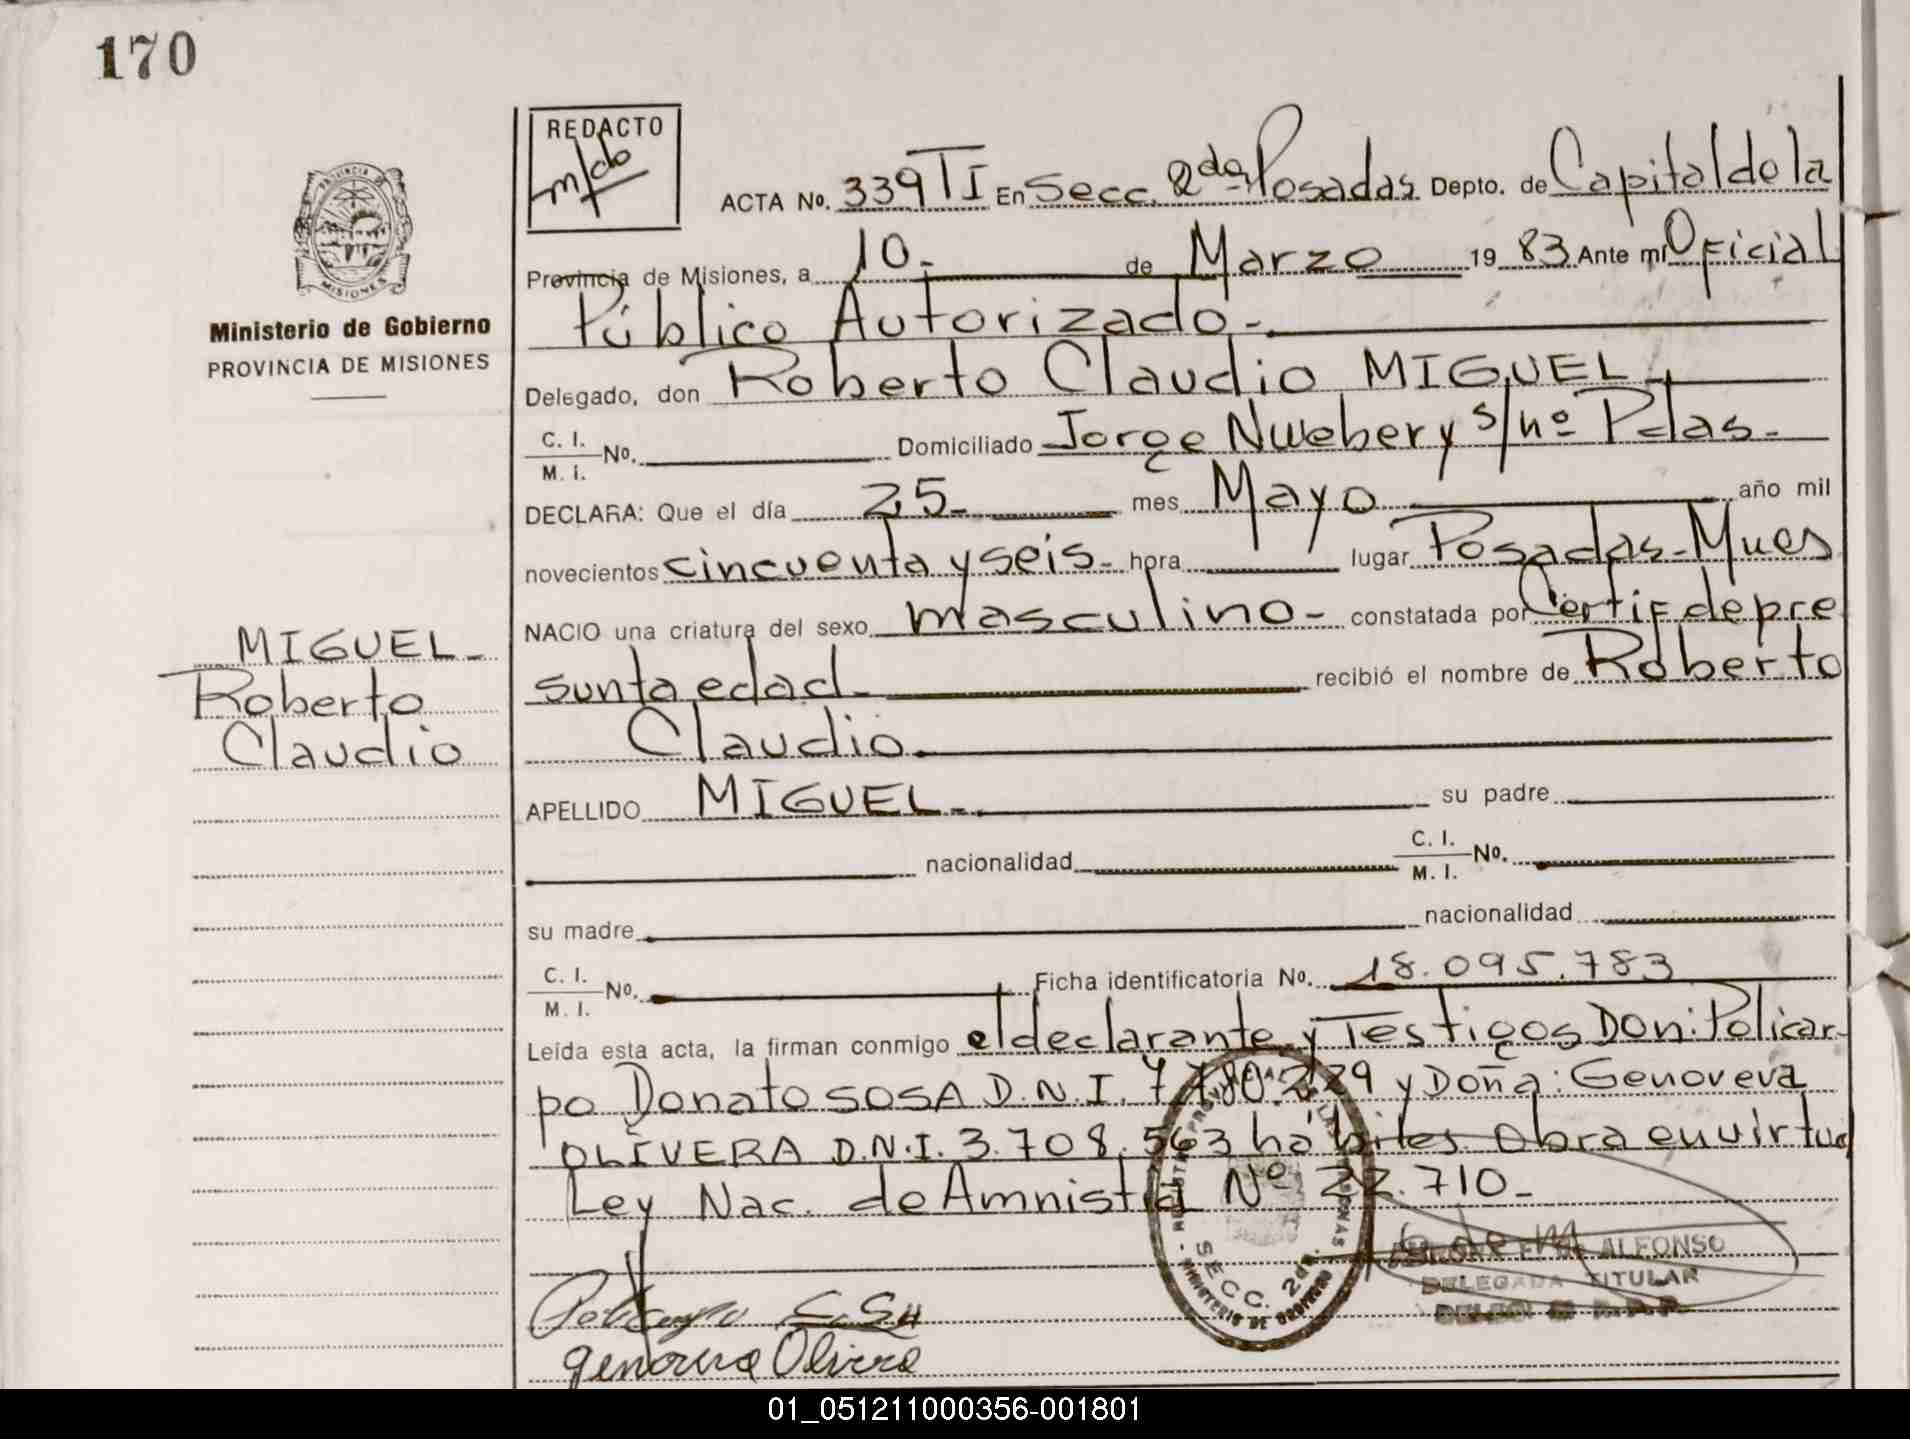 170
REDACTO
ACTA No. 339 TI En Secc. 2da Posadas Depto. de Capital de la
Provincia de Misiones, a 10- de Marzo 19 83 Ante mi Oficial
Público Autorizado-
Delegado, don Roberto Claudio MIGUEL
C. I.
M. i. No. Domiciliado Jorge Nwebery s/nº Pdas-
DECLARA: Que el día 25- mes Mayo año mil
novecientos cincuenta y seis- hora lugar Posadas-Mnes
NACIO una criatura del sexo masculino- constatada por Certif de pre
sunta edad- recibió el nombre de Roberto
Claudio
APELLIDO MIGUEL- su padre
nacionalidad C. I.
M. I. No.
su madre nacionalidad
C. I.
M. I. No. Ficha identificatoria No. 18.095.783
Leída esta acta, la firman conmigo el declarante y Testigos Don: Policar-
po Donato SOSA D.N.I. 7.780.229 y Doña: Genoveva
OLIVERA D.N.I. 3.708.563 hábiles Obra en virtud
Ley Nac. de Amnistia Nº 22.710-
ALFONSO
DELEGADA TITULAR
SECC. 2da.
MINISTERIO DE GOBIERNO
Genoveva Olivera
PROVINCIA DE
MISIONES
Ministerio de Gobierno
PROVINCIA DE MISIONES
MIGUEL-
Roberto
Claudio
01_051211000356-001801